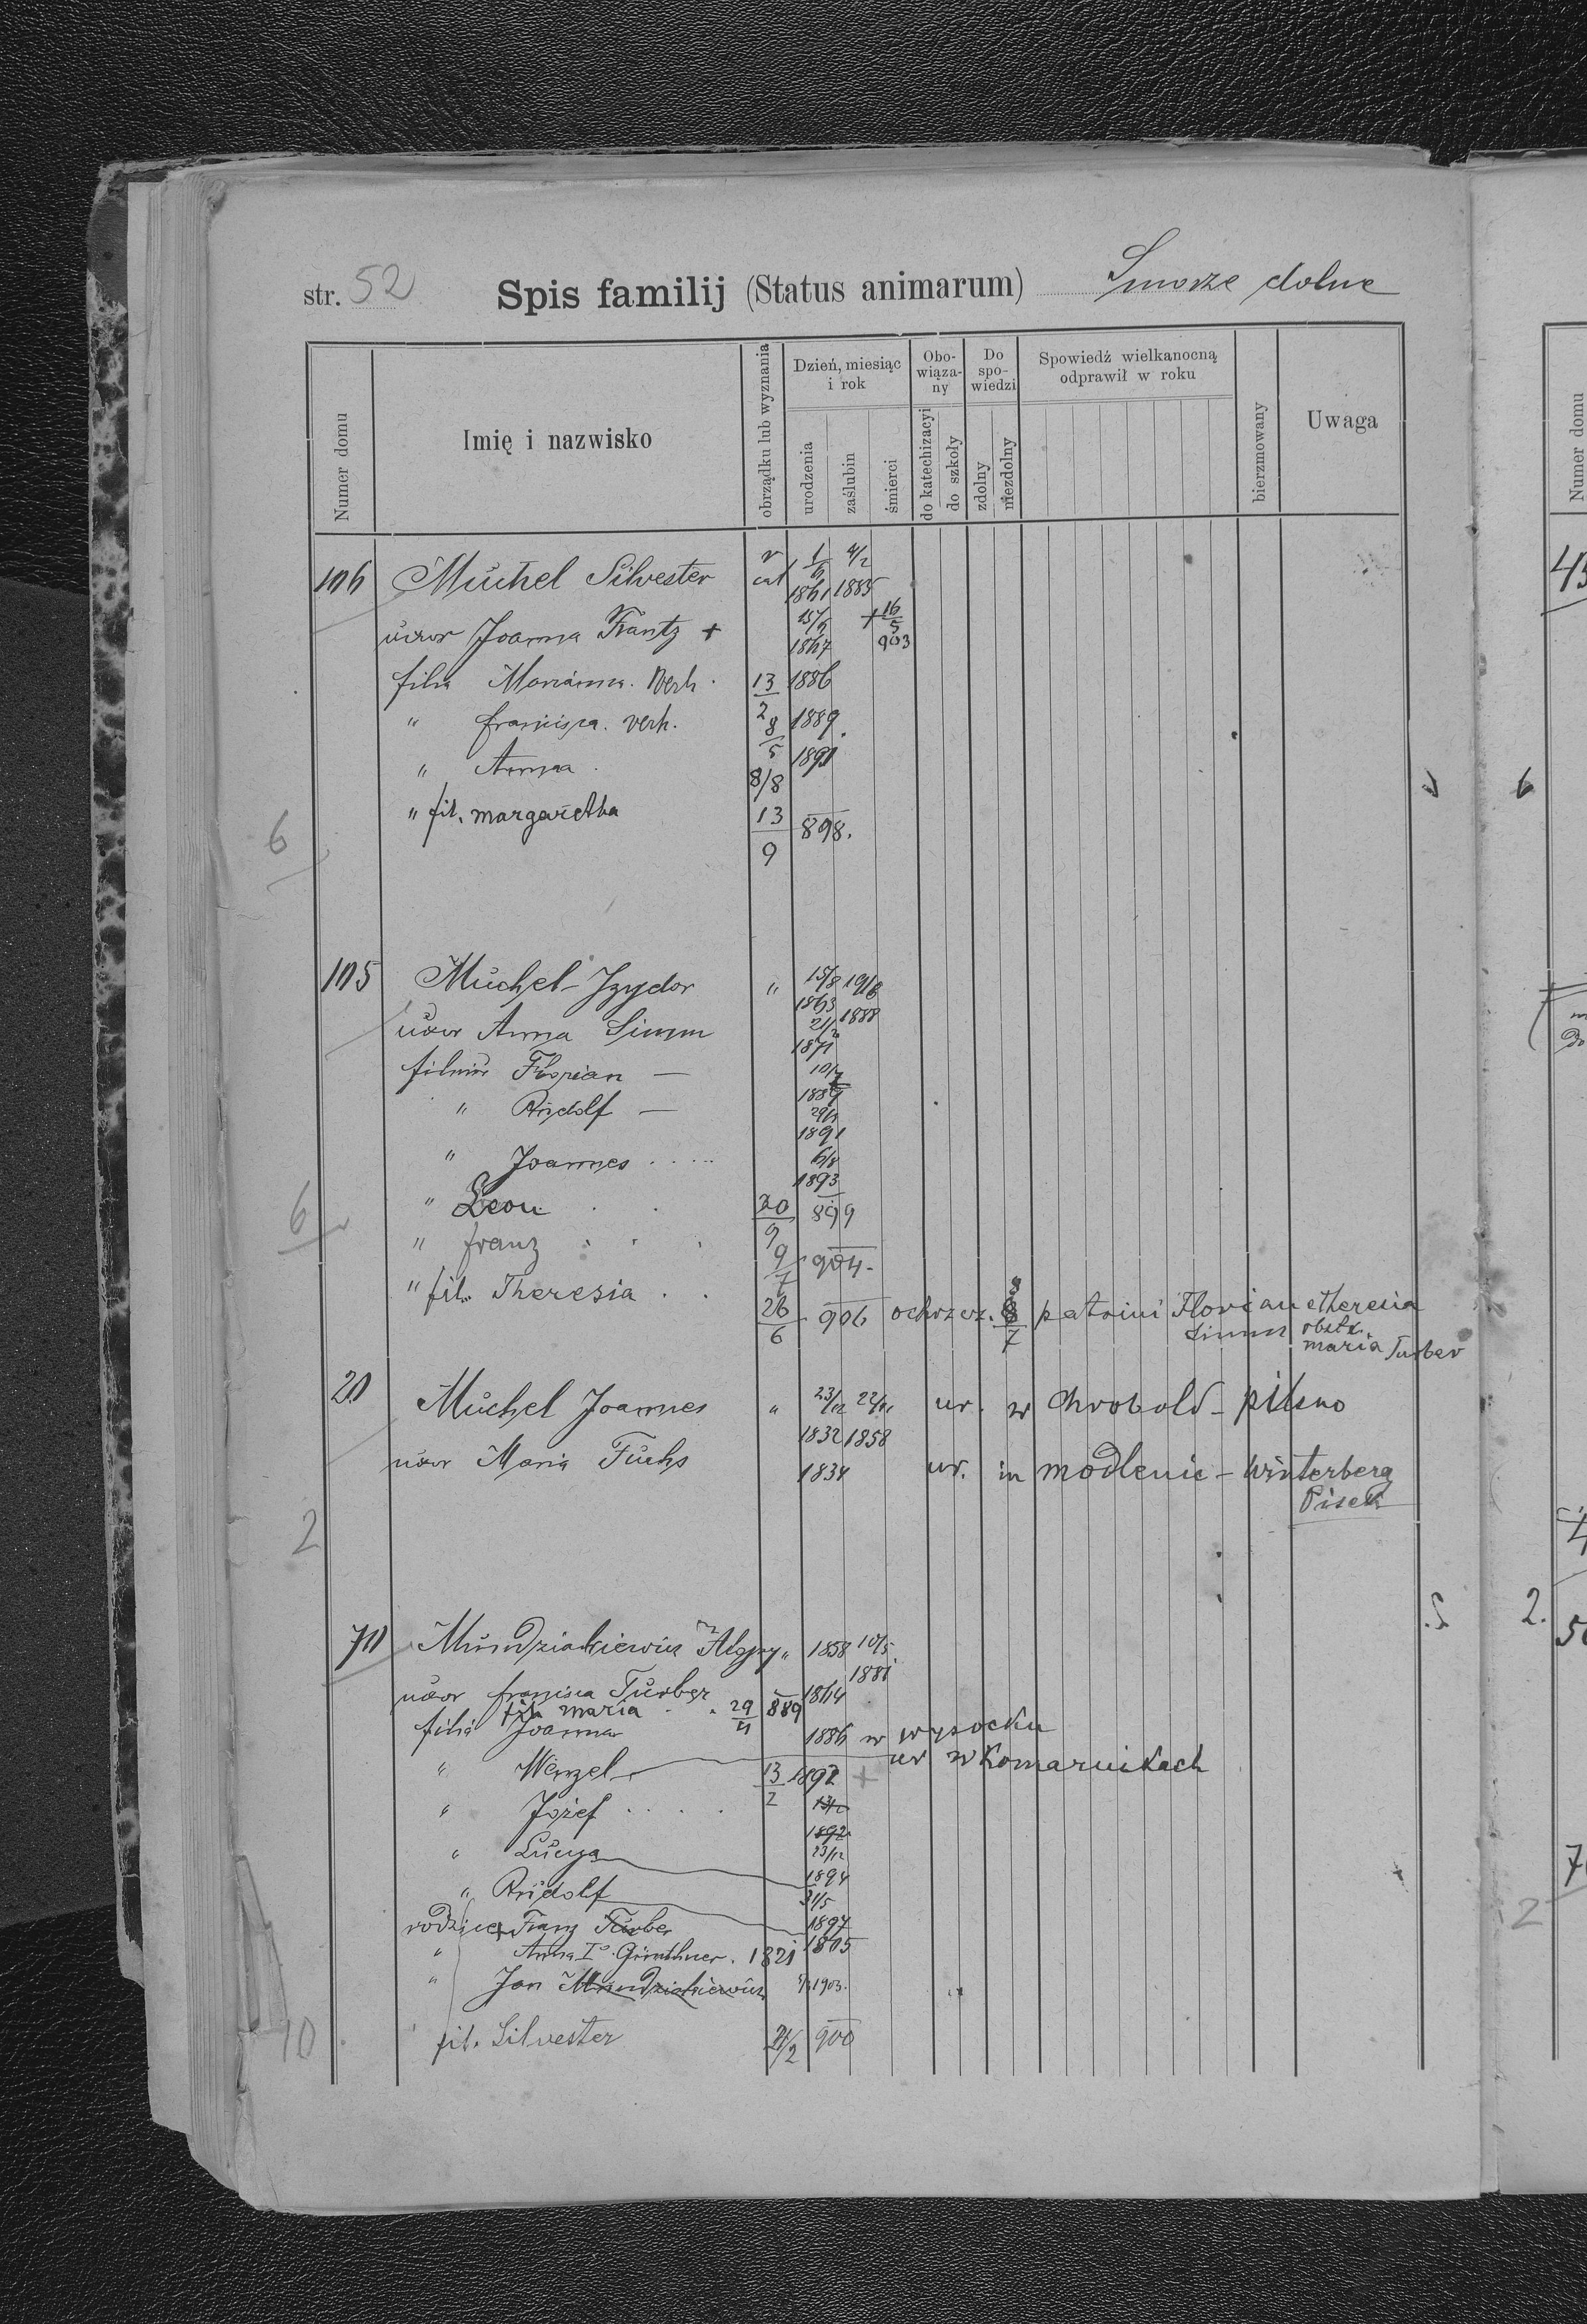 str. 52 Spis familij (Status animarum) Smorze dolne
Numer domu
Imię i nazwisko
obrządku lub wyznania
Dzień, miesiąc i rok
urodzenia
zaślubin
śmierci
Obo-wiąza-ny
do katechizacyi
do szkoły
Do spo-wiedzi
zdolny
niezdolny
Spowiedź wielkanocną odprawił w roku
bierzmowany
Uwaga
106 Muchel Silvester 1861 1885
uxor Joanna Frantz + 1867 + 16/5 903
filia Marianna. Verh. 13/2 1886
" Francisca. verh. 8/5 1889
" Anna 8/8 1891
" fil. margaretha 13/9 898.
6
105 Muchel Izydor " 15/8 1863 1888
uxor Anna Simm 1871
filius Florian — 1889
" Rudolf — 1891
" Joannes 6/8 1893
" Leon 20/9 899
" franz 9/7 904.
" fil. Theresia 26/6 906 ochrzcz. 8/7 patrini Florian et Theresia
Simm obstx. maria Turber
6
20 Muchel Joannes " 23/12 1832 1858 ur. w Chrobold - pilsno
uxor Maria Fuchs 1834 ur. in modlenic - Winterberg
Pisek
2
70 Mundziakiewicz Alojzy " 1858 10/5 1881
uxor francisca Turber 1864
fila maria 29/11 889
filia Joanna 1886 w wysocku
" Wenzel 13/2 1892 + ur w Komarnikach
" Józef 1892
" Lucya 23/12 1894
" Rudolf 31/5 1897
rodzice + Franz Turber 1805
" Anna I° Günthner. 1821
" Jan Mundziakiewicz 1903.
fil. Silvester 21/2 900
10